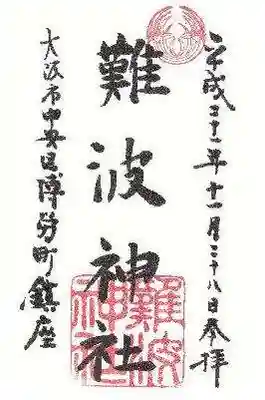 平成二十一年十一月二十八日奉拝
難波神社
大阪市中央区博労町鎮座
難波神社